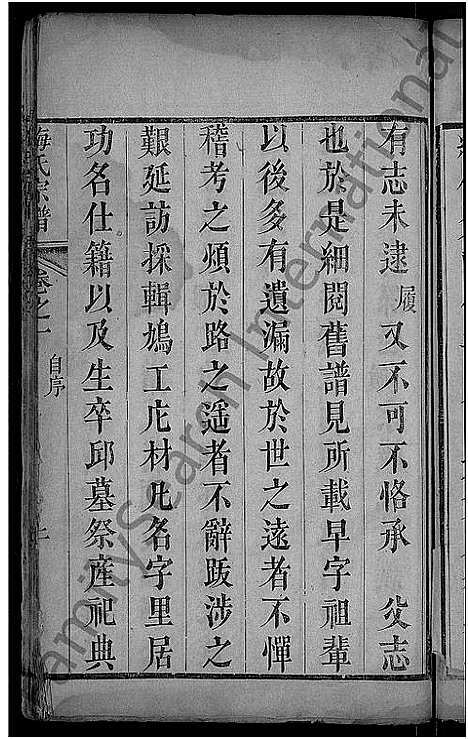 有志未逮履又不可不恪承 父志
也於是細閱舊譜見所載早字祖輩
以後多有遺漏故於世之遠者不憚
稽考之煩於路之遥者不辭跋涉之
艱延訪採輯鳩工庀材凡名字里居
功名仕籍以及生卒邱墓祭產祀典
梅氏宗譜 卷之一 自序
FamilySearch International